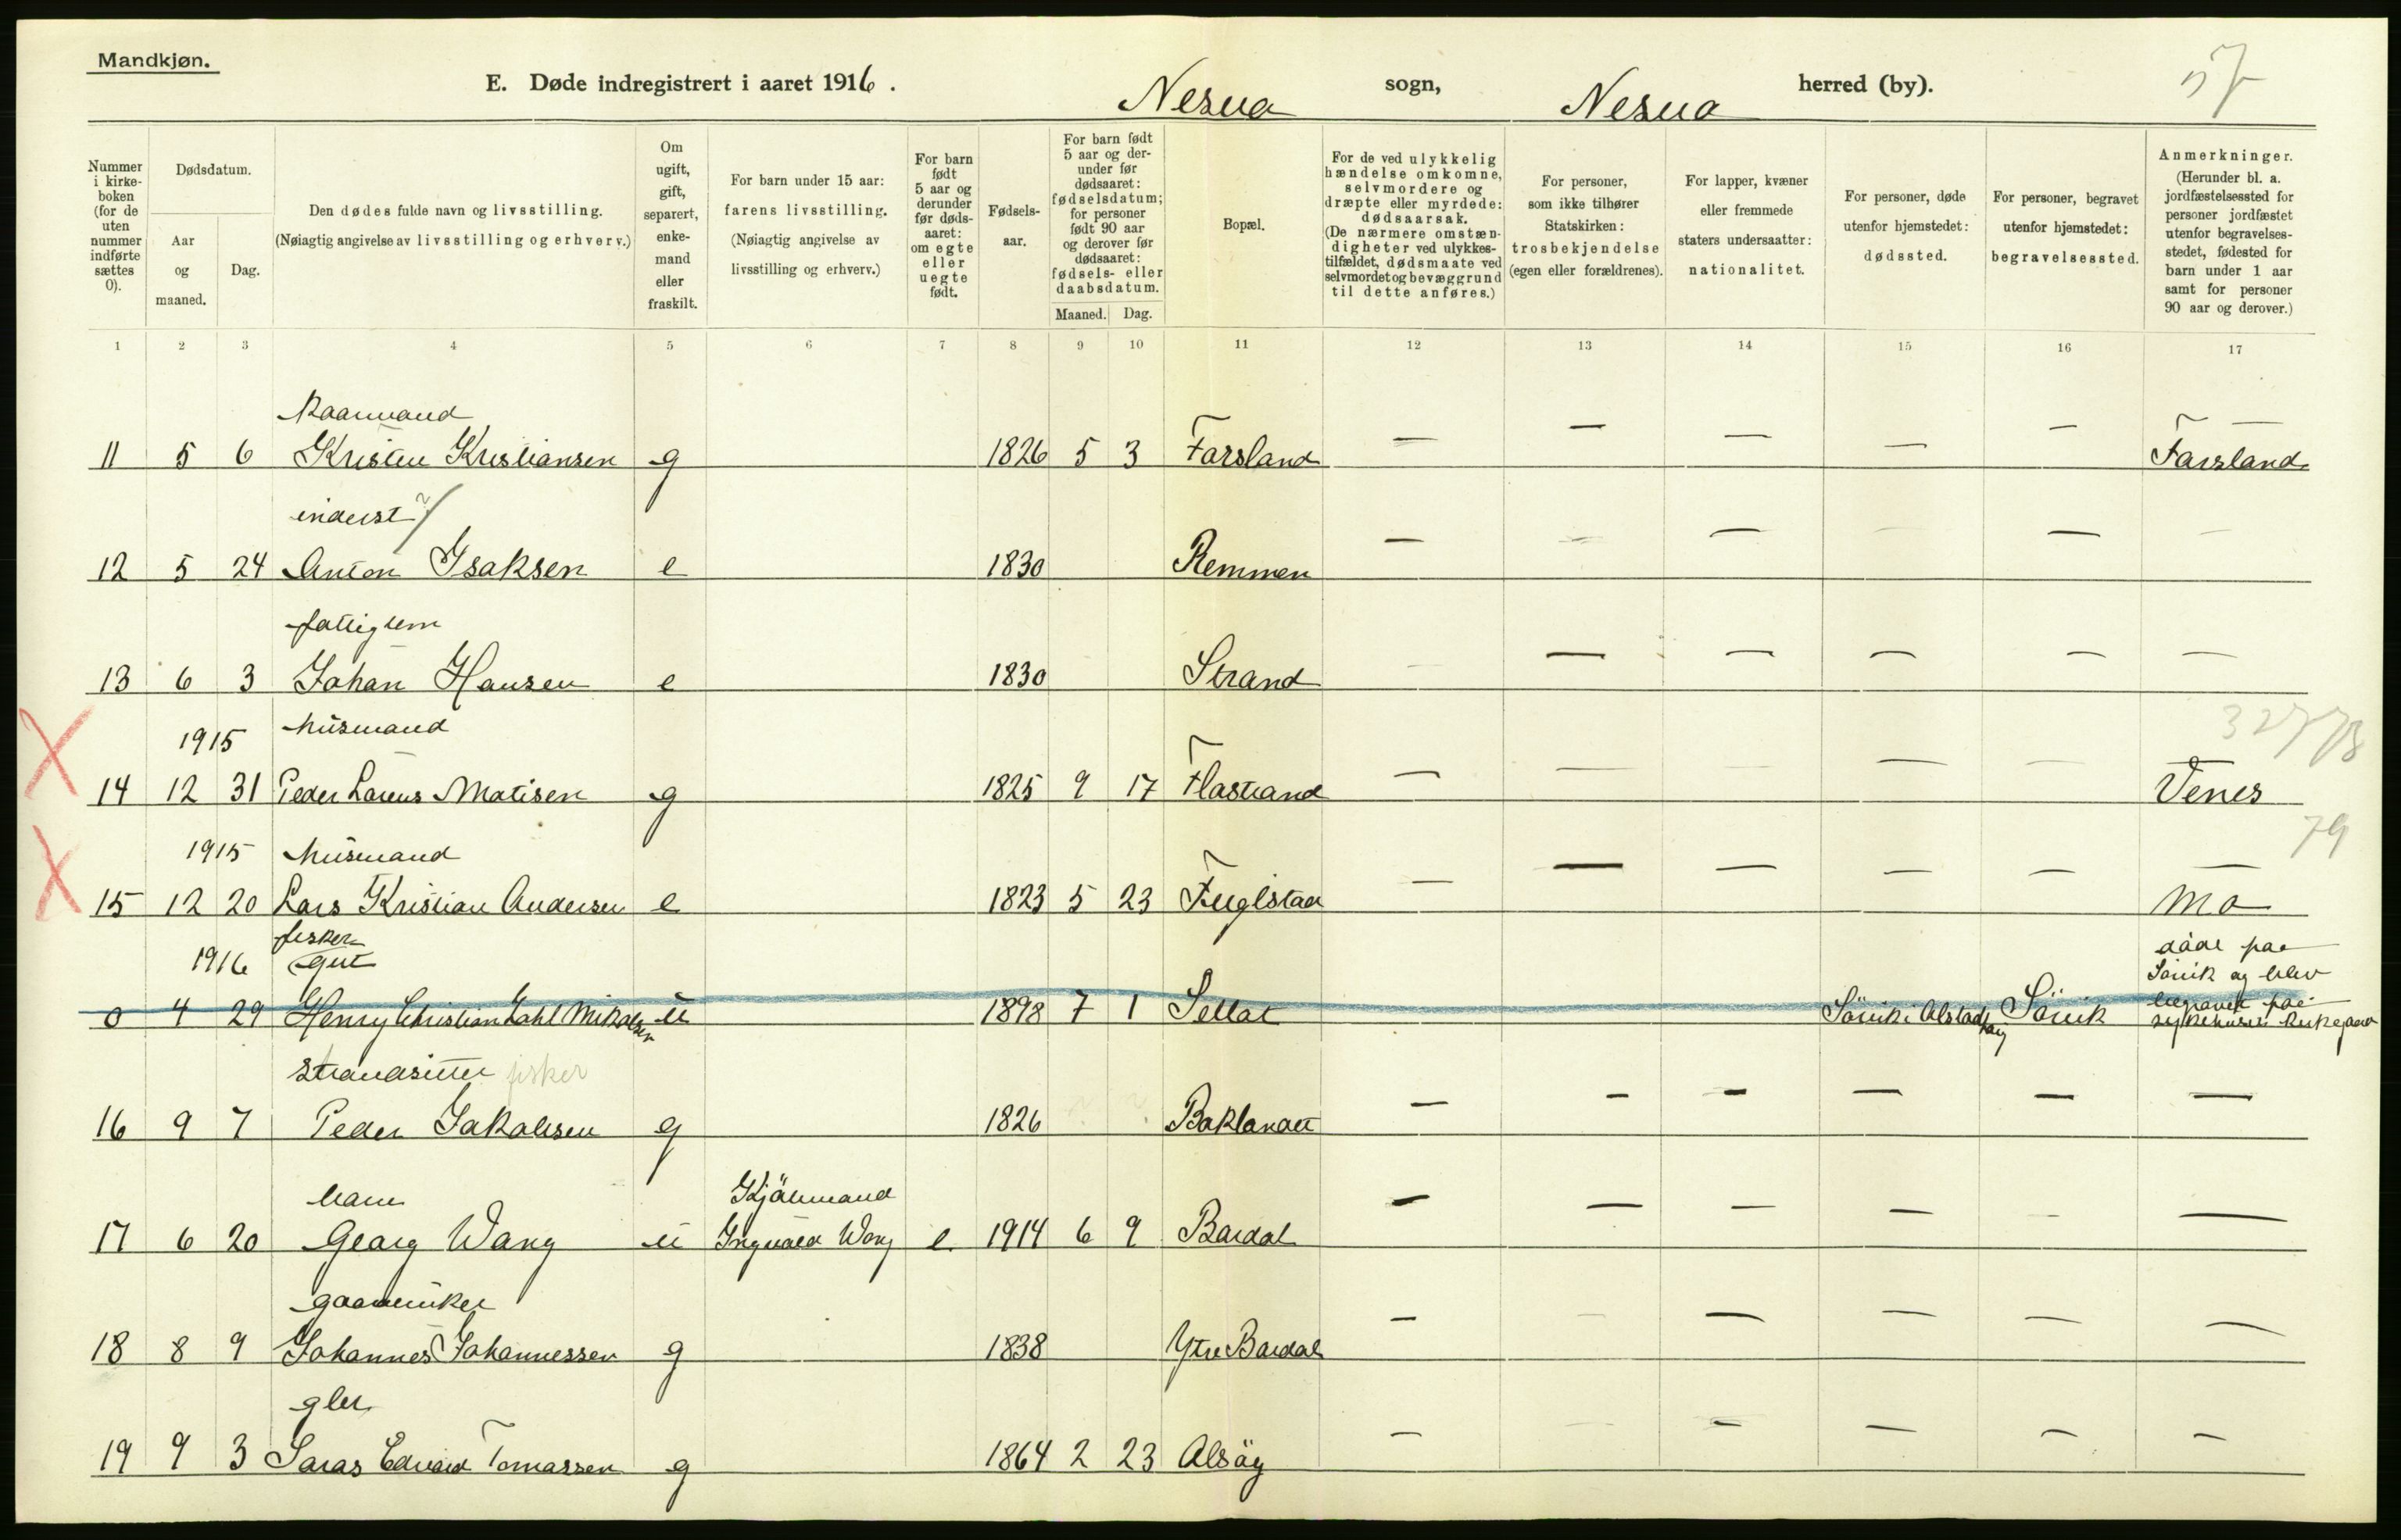 Mandkjøn.
E. Døde indregistrert i aaret 1916. Nesna sogn, Nesna herred (by).
57
Nummer i kirkeboken (for de uten nummer indførte sættes 0).
Dødsdatum.
Aar og maaned.
Dag.
Den dødes fulde navn og livsstilling.
(Nøiagtig angivelse av livsstilling og erhverv.)
Om ugift, gift, separert, enkemand eller fraskilt.
For barn under 15 aar: farens livsstilling.
(Nøiagtig angivelse av livsstilling og erhverv.)
For barn født 5 aar og derunder før dødsaaret: om egte eller uegte født.
Fødselsaar.
For barn født 5 aar og derunder før dødsaaret: fødselsdatum; for personer født 90 aar og derover før dødsaaret: fødsels- eller daabsdatum.
Maaned. Dag.
Bopæl.
For de ved ulykkelig hændelse omkomne, selvmordere og dræpte eller myrdede: dødsaarsak.
(De nærmere omstændigheter ved ulykkestilfældet, dødsmaate ved selvmordet og bevæggrund til dette anføres.)
For personer, som ikke tilhører Statskirken: trosbekjendelse (egen eller forældrenes).
For lapper, kvæner eller fremmede staters undersaatter: nationalitet.
For personer, døde utenfor hjemstedet: dødssted.
For personer, begravet utenfor hjemstedet: begravelsessted.
Anmerkninger.
(Herunder bl. a. jordfæstelsessted for personer jordfæstet utenfor begravelsesstedet, fødested for barn under 1 aar samt for personer 90 aar og derover.)
1 2 3 4 5 6 7 8 9 10 11 12 13 14 15 16 17
Kaarmand
11 5 6 Kristen Kristiansen g 1826 5 3 Farsland — — — — — — Farsland
inderst ?/
12 5 24 Anton Isaksen e 1830 Remmen — — — — — —
fattiglem
13 6 3 Johan Hansen e 1830 Strand — — — — — —
1915 husmand
14 12 31 Peder Lorens Matisen g 1825 9 17 Flastrand — — — — — — Venes
1915 husmand
79
15 12 20 Lars Kristian Andersen e 1823 5 23 Fuglstad — — — — — — Mo
fisker
1916 gut
døde paa
Sövik og blev
0 4 29 Henry Christian Dahl Mikalsen u 1898 7 1 Sellat Sövik i Alstadhaug Sövik begravet paa
sykehusets kirkegaard
strandsitter fisker
16 9 7 Peder Jakobsen g 1826 Baklandet — — — — — —
barn Kjöbmand
17 6 20 Georg Wang u Ingvald Wang e 1914 6 9 Bardal — — — — — —
gaardbruker
18 8 9 Johannes Johannessen g 1838 Ytre Bardal — — — — — —
gbr.
19 9 3 Saras Edvard Tomassen g 1864 2 23 Alsöy — — — — — —